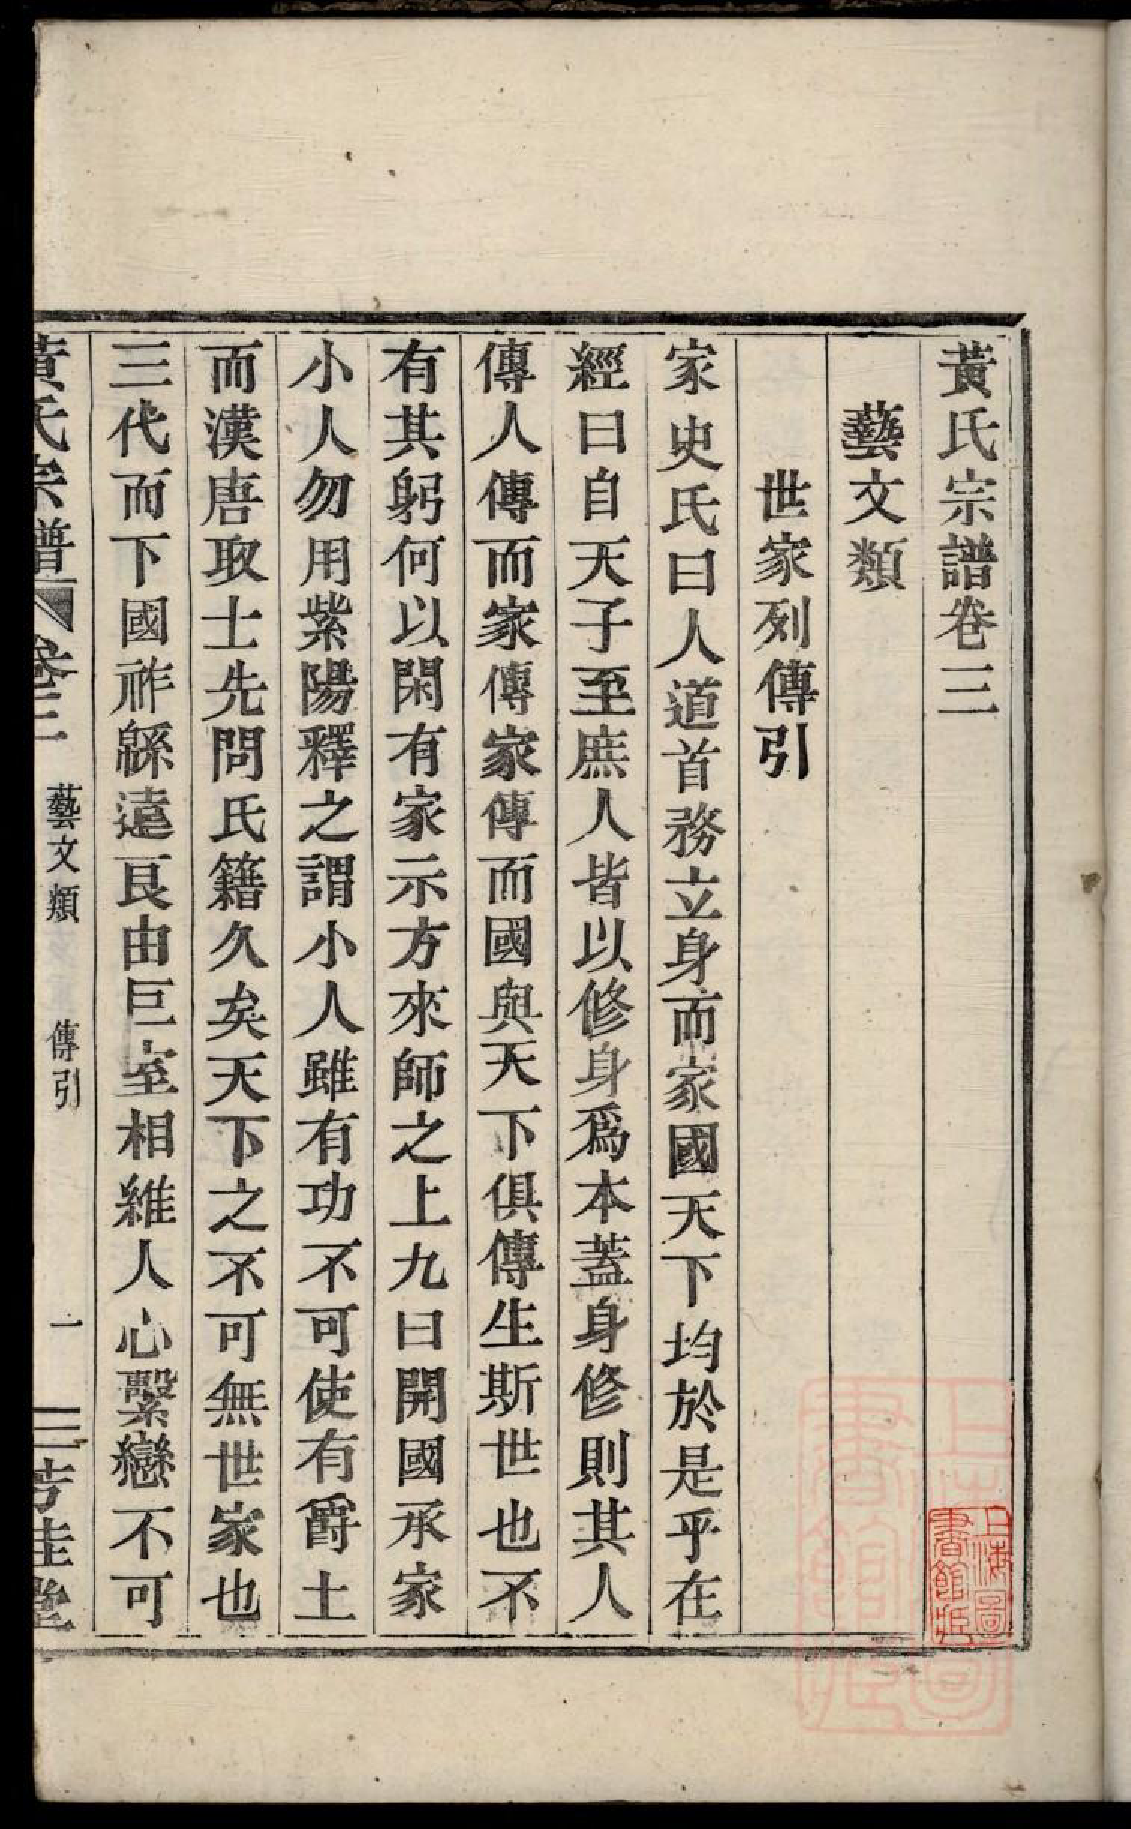 黃氏宗譜卷三
藝文類
世家列傳引
家史氏曰人道首務立身而家國天下均於是乎在
經曰自天子至庶人皆以修身爲本蓋身修則其人
傳人傳而家傳家傳而國與天下俱傳生斯世也不
有其躬何以閑有家示方來師之上九曰開國承家
小人勿用紫陽釋之謂小人雖有功不可使有爵土
而漢唐取士先問氏籍久矣天下之不可無世家也
三代而下國祚緜遠良由巨室相維人心繫戀不可
黃氏宗譜 卷三 藝文類 傳引 一 芳桂堂
上海圖書館藏